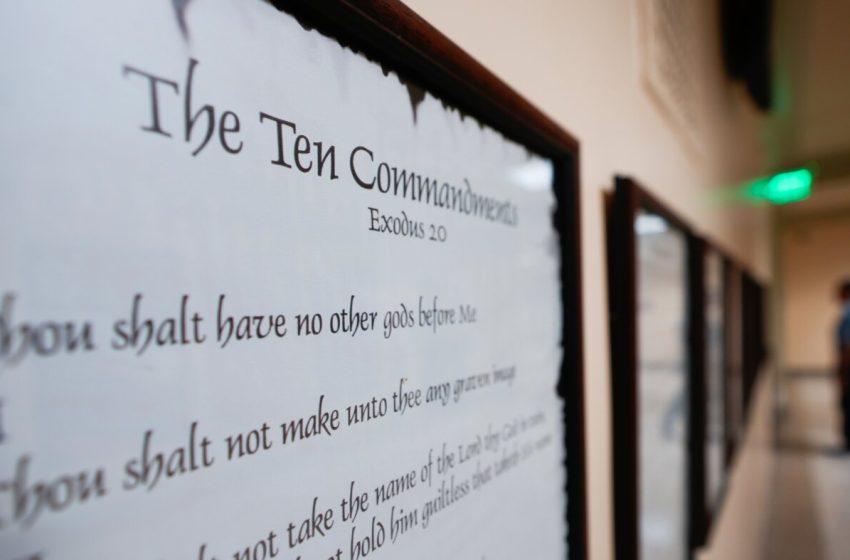 The Ten Commandments
Exodus 20
hou shalt have no other gods before Me
Thou shalt not make unto thee any graven image
not take the name of the Lord thy God in vain,
not hold him guiltless that taketh his name